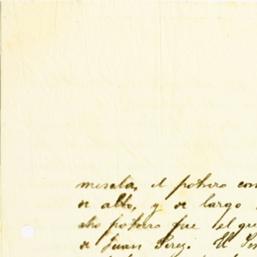 meseta, el potrero con
de alto, y de largo
dho potrero fue el que
de Juan Perez. El